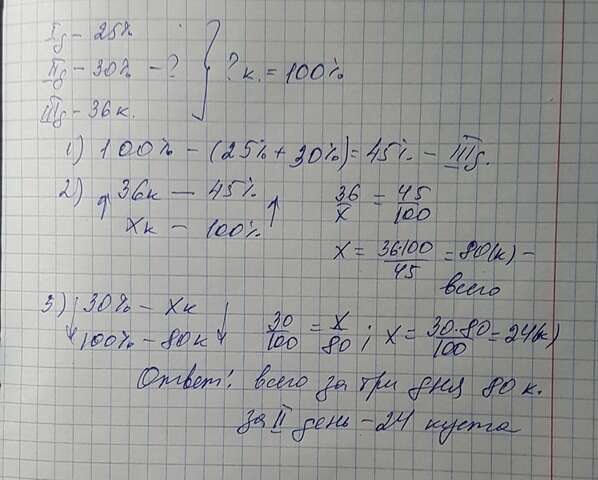 I д - 25%
II д - 30% - ? } ? к. = 100%
III д - 36 к.
1) 100% - (25% + 30%) = 45% - III д.
2) ↑ 36к — 45% ↑ 36/x = 45/100
xк — 100%
x = 36·100/45 = 80(к) -
всего
3) ↓ 30% - xк ↓
100% - 80к 30/100 = x/80 ; x = 30·80/100 = 24(к)
Ответ: всего за три дня 80 к.
за II день - 24 куста